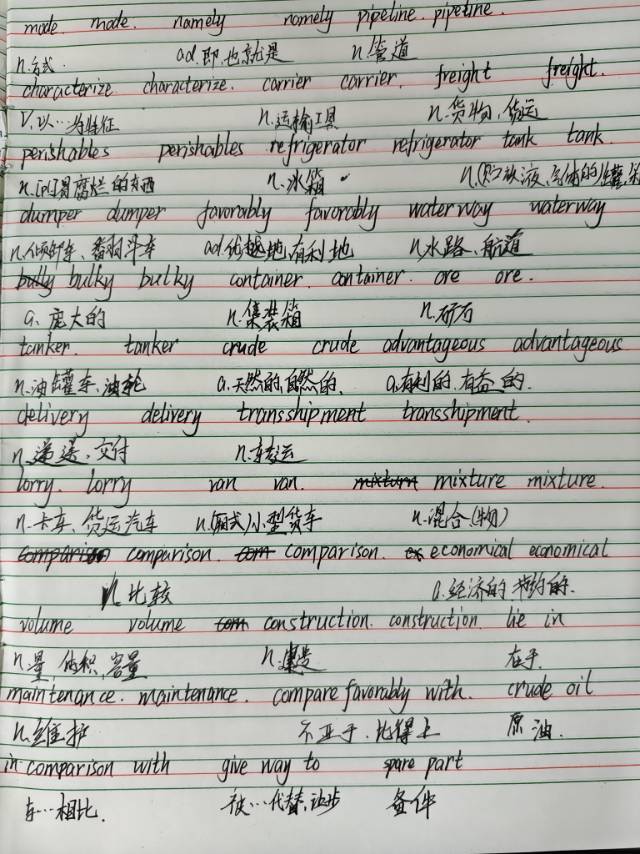 mode. mode. namely namely pipeline. pipeline.
n.方式. ad.即,也就是 n.管道
characterize characterize. carrier carrier. freight freight.
V.以…为特征 n.运输工具 n.货物,货运
perishables perishables refrigerator refrigerator tank tank.
n.[pl]易腐烂的东西 n.冰箱 n.(贮放液、气体的)罐,箱
dumper dumper favorably favorably waterway waterway
n.倾卸车、翻斗车 ad.优越地,有利地 n.水路、航道
bully bulky bulky container. container. ore ore.
a.庞大的 n.集装箱 n.矿石
tanker. tanker crude crude advantageous advantageous
n.油罐车,油轮 a.天然的,自然的. a.有利的,有益的.
delivery delivery transshipment transshipment.
n.递送、交付 n.转运
lorry. lorry van van. mixture mixture.
n.卡车、货运汽车 n.(厢式)小型货车 n.混合(物)
comparison. comparison. economical economical
n.比较 a.经济的 节约的.
volume volume construction. construction. lie in
n.量,体积,容量 n.建造 在于.
maintenance. maintenance. compare favorably with. crude oil
n.维护 不亚于,比得上 原油.
in comparison with give way to spare part
与…相比. 被…代替,让步 备件